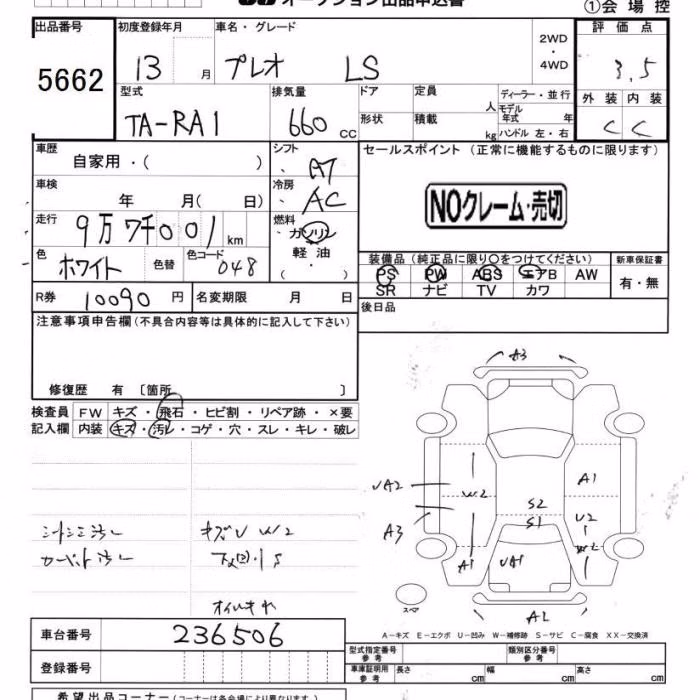 オークション出品申込書
①会場控
出品番号
5662
初度登録年月
13 月
車名・グレード
プレオ LS
2WD
・
4WD
評価点
3.5
外装 内装
C C
型式
TA-RA1
排気量
660 CC
ドア
形状
定員
人
積載
kg
ディーラー・並行
モデル
年式 年
ハンドル 左・右
車歴
自家用・( )
シフト
AT
セールスポイント (正常に機能するものに限ります)
NOクレーム・売切
車検
年 月( 日)
冷房
AC
走行
9万7千001 km
燃料
ガソリン
軽油
・
( )
色
ホワイト
色替
色コード
048
装備品 (純正品に限り○をつけてください)
PS PW ABS エアB AW
SR ナビ TV カワ
新車保証書
有・無
R券 10090 円
名変期限 月 日
後日品
注意事項申告欄 (不具合内容等は具体的に記入して下さい)
修復歴 有 〔箇所 〕
検査員 FW キズ・飛石・ヒビ割・リペア跡・×要
記入欄 内装 キズ・汚レ・コゲ・穴・スレ・キレ・破レ
A3
A1
UA2
W2
S2
S1
U2
W2
A3
A1
UA1
A2
キズU W2
スペア
車台番号 236506
A-キズ E-エクボ U-凹み W-補修跡 S-サビ C-腐食 XX-交換済
登録番号
型式指定番号
参考
類別区分番号
参考
車庫証明用
参考
長さ cm 幅 cm 高さ cm
希望出品コーナー (コーナーは各会場により異なります)